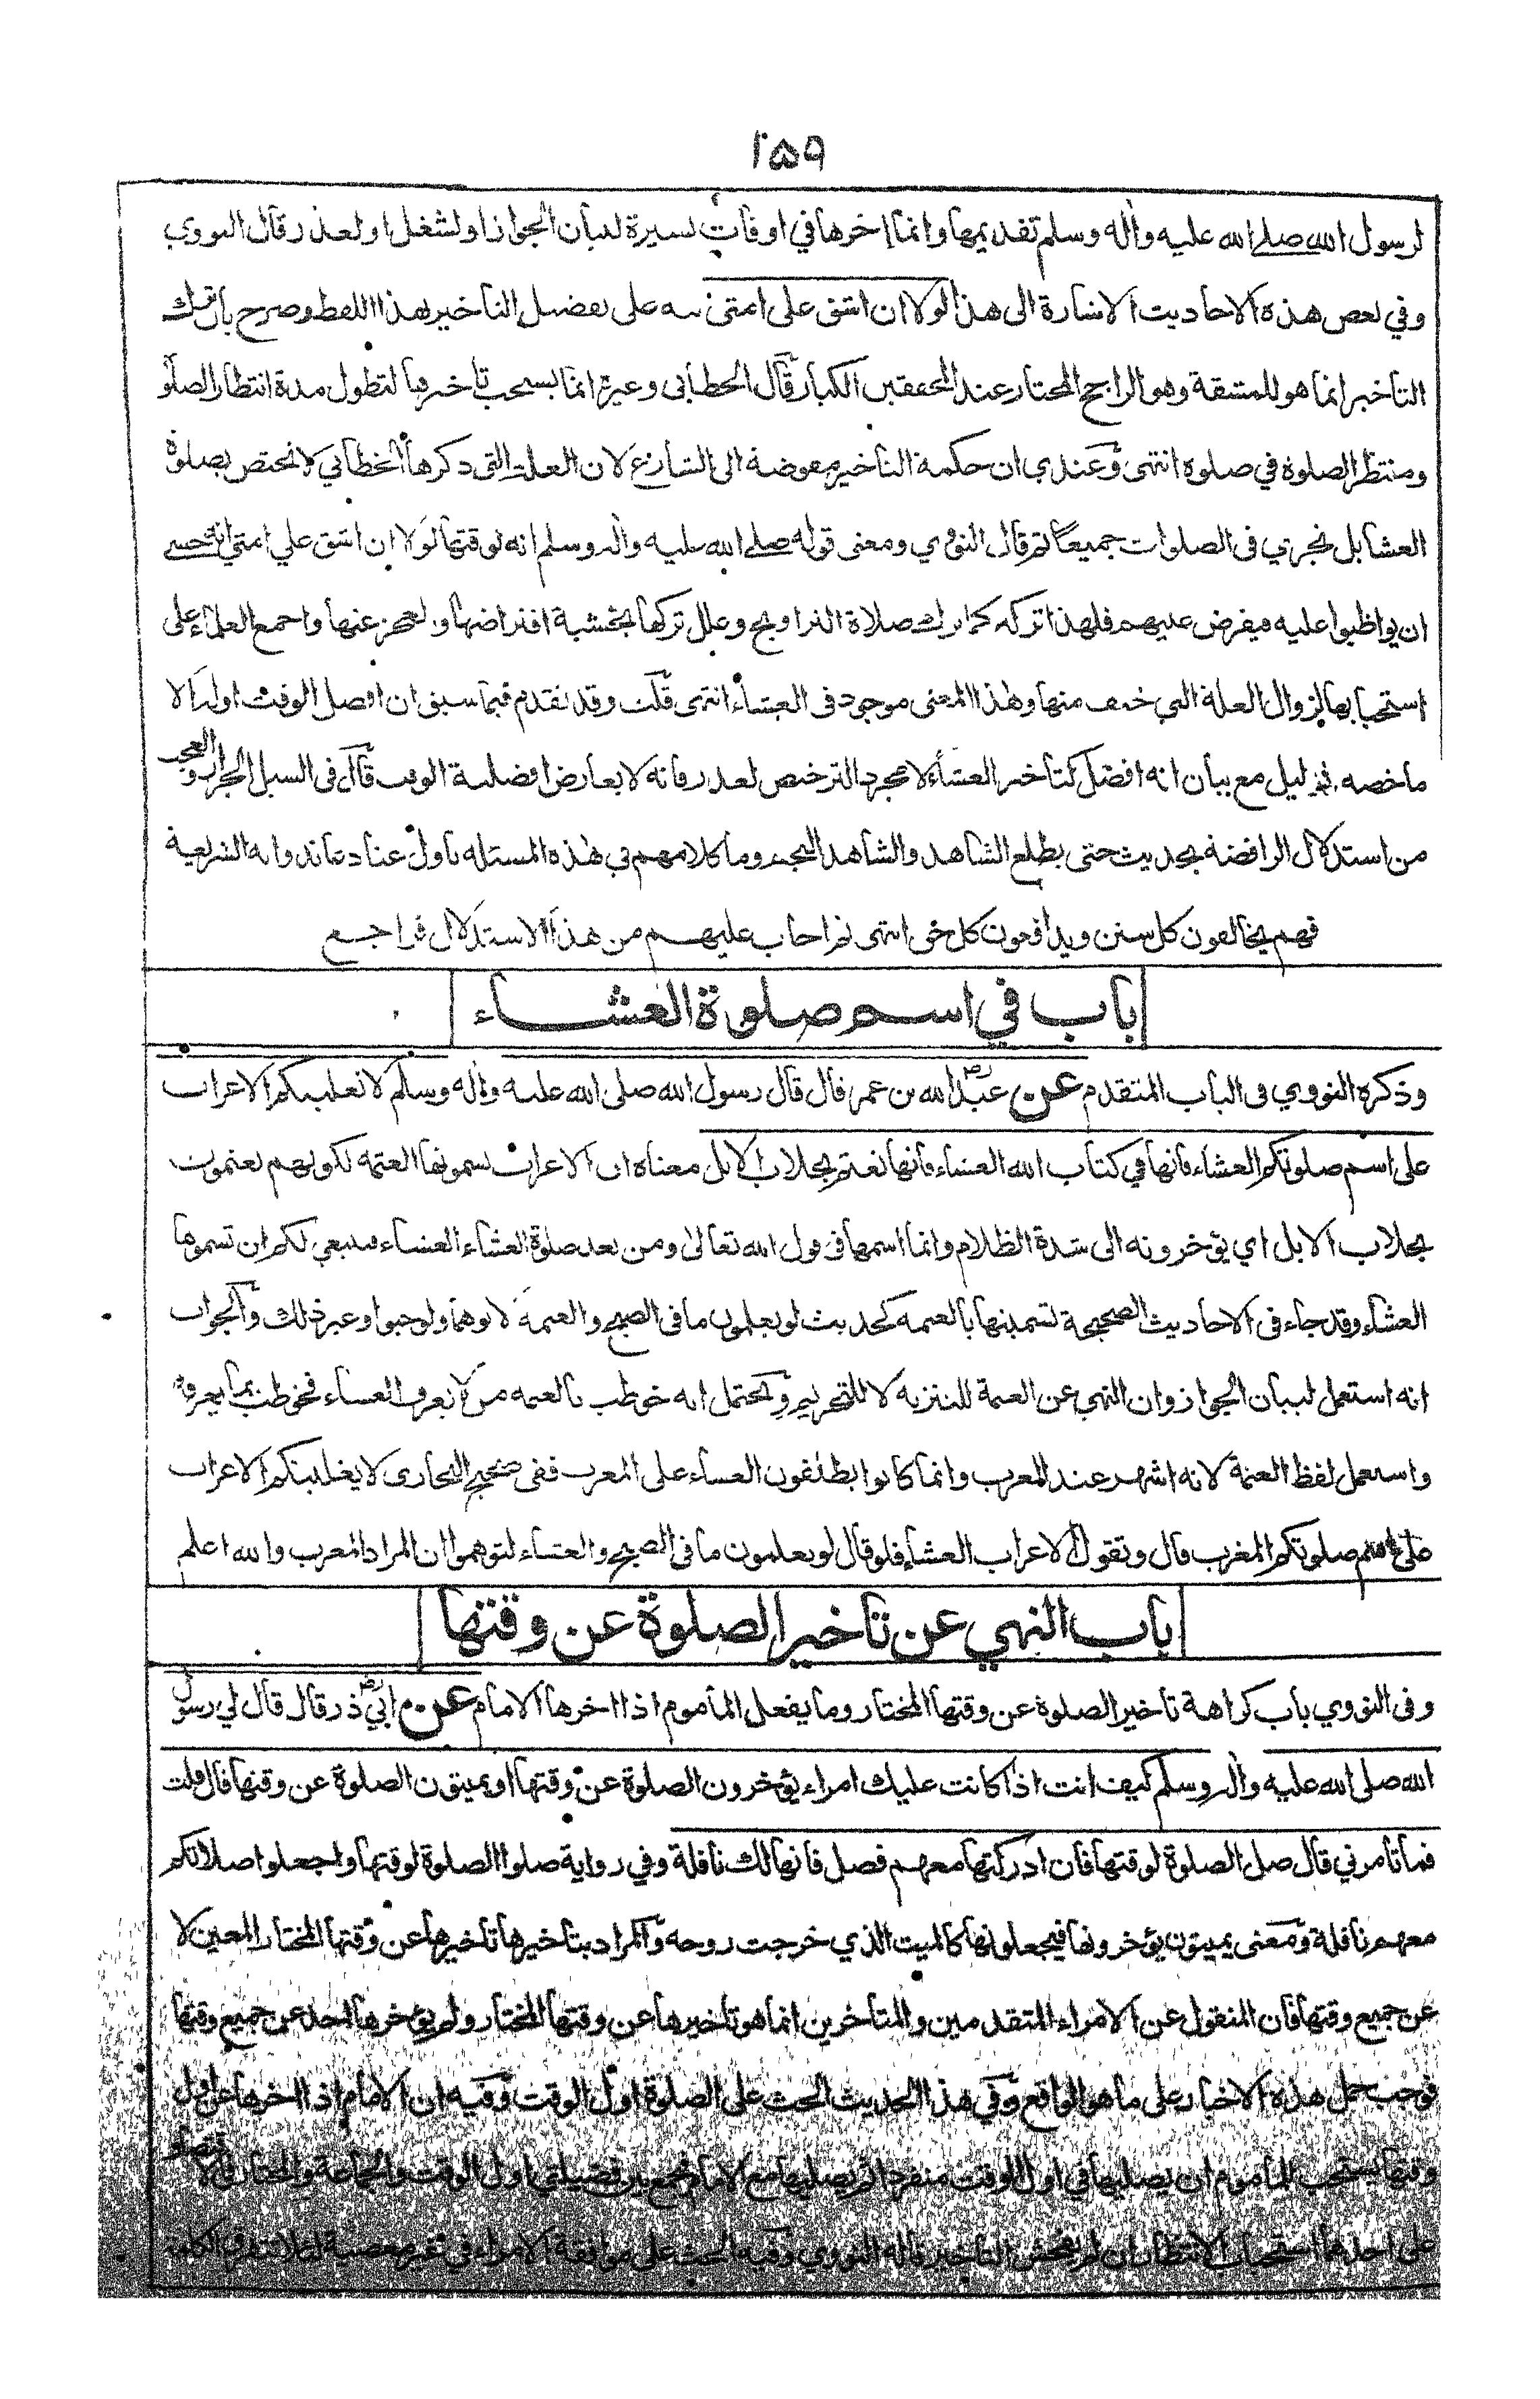 ٢٥٩
لرسول الله صلى الله عليه واله وسلم تقديمها وانما اخرها في اوقات يسيرة لبيان الجواز او لشغل او لعذر قال النووي
وفي بعض هذه الاحاديث الاشارة الى هذا لولا ان اشق على امتي نبه على تفضيل التاخير بهذا اللفظ وصرح بان ترك
التاخير انما هو للمشقة وهو الراجح المختار عند المحققين الكبار قال الخطابي وغيره انما يستحب تاخيرها لتطول مدة انتظار الصلو
ومنتظر الصلوة في صلوة انتهى وعندي ان حكمة التاخير مفوضة الى الشارع لان العلة التي ذكرها الخطابي لا تختص بصلوة
العشا بل تجري في الصلوات جميعا ثم قال النووي ومعنى قوله صلى الله عليه واله وسلم انه لوقتها لولا ان اشق علي امتي انه خشي
ان يواظبوا عليه فيفرض عليهم فلهذا تركه كما ترك صلاة التراويح وعلل تركها بخشية افتراضها والعجز عنها واجمع العلماء على
استحبابها لزوال العلة التي خيف منها وهذا المعنى موجود في العشاء انتهى قلت وقد تقدم فيما سبق ان افضل الوقت اوله الا
ما خصه دليل مع بيان انه افضل كتاخير العشاء لا مجرد الترخيص لعذر فانه لا يعارض افضلية الوقت قال في السيل الجرار والعجب
من استدلال الرافضة بحديث حتى يطلع الشاهد والشاهد النجم وما كلامهم في هذه المسئلة باول عناد عاندوا به الشريعة
فهم يخالفون كل سنن ويدافعون كل حق انتهى ثم اجاب عليهم من هذا الاستدلال فراجع
باب في اسم صلوة العشاء
وذكره النووي في الباب المتقدم عن عبد الله بن عمر قال قال رسول الله صلى الله عليه واله وسلم لا تغلبنكم الاعراب
على اسم صلوتكم العشاء فانها في كتاب الله العشاء فانها تعتم بحلاب الابل معناه ان الاعراب يسمونها العتمة لكونهم يعتمون
بحلاب الابل اي يؤخرونه الى شدة الظلام وانما اسمها في قول الله تعالى ومن بعد صلوة العشاء العشاء فينبغي لكم ان تسموها
العشاء وقد جاء في الاحاديث الصحيحة تسميتها بالعتمة كحديث لو يعلمون ما في الصبح والعتمة لاتوهما ولو حبوا وغير ذلك والجواب
انه استعمل لبيان الجواز وان النهي عن العتمة للتنزيه لا للتحريم ويحتمل انه خوطب بالعتمة من لا يعرف العشاء فخوطب بما يعرفه
واستعمل لفظ العتمة لانه اشهر عند العرب وانما كانوا يطلقون العشاء على المغرب ففي صحيح البخاري لا يغلبنكم الاعراب
على اسم صلوتكم المغرب قال وتقول الاعراب العشاء فلو قال لو يعلمون ما في الصبح والعشاء لتوهموا ان المراد المغرب والله اعلم
باب النهي عن تاخير الصلوة عن وقتها
وفي النووي باب كراهة تاخير الصلوة عن وقتها المختار وما يفعل الماموم اذا اخرها الامام عن ابي ذر قال قال لي رسول
الله صلى الله عليه واله وسلم كيف انت اذا كانت عليك امراء يؤخرون الصلوة عن وقتها او يميتون الصلوة عن وقتها قال قلت
فما تأمرني قال صل الصلوة لوقتها فان ادركتها معهم فصل فانها لك نافلة وفي رواية صلوا الصلوة لوقتها واجعلوا صلاتكم
معهم نافلة ومعنى يميتون يؤخرونها فيجعلونها كالميت الذي خرجت روحه والمراد بتاخيرها تاخيرها عن وقتها المختار المعين لا
عن جميع وقتها فان المنقول عن الامراء المتقدمين والمتاخرين انما هو تاخيرها عن وقتها المختار ولم يؤخرها احد عن جميع وقتها
فوجب حمل هذه الاخبار على ما هو الواقع وفي هذا الحديث الحث على الصلوة اول الوقت وفيه ان الامام اذا اخرها عن اول
وقتها يستحب للماموم ان يصليها في اول الوقت منفردا ثم يصليها مع الامام فيجمع بين فضيلتي اول الوقت والجماعة والمختار
على احدهما استحباب الانتظار ان لم يفحش التاخير قاله النووي وفيه الحث على موافقة الامراء في غير معصية لئلا تتفرق الكلمة